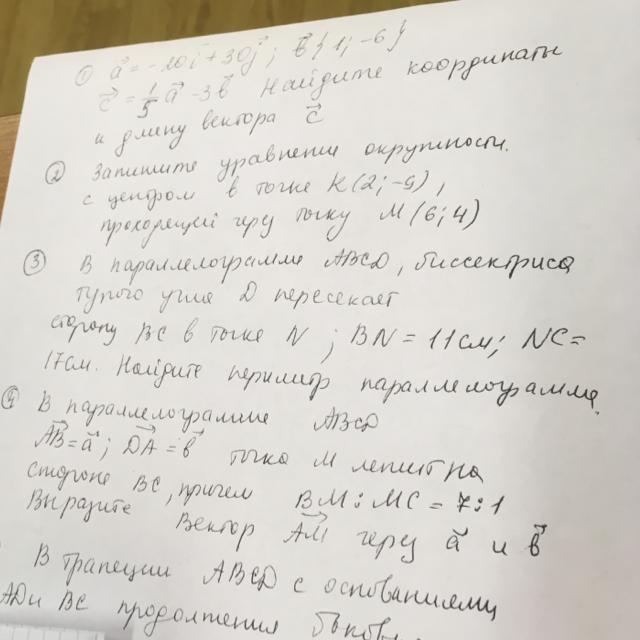 ① a⃗ = -20i⃗ + 30j⃗; b⃗{1; -6}
c⃗ = 1/5 a⃗ - 3b⃗ Найдите координаты
и длину вектора c⃗
② Запишите уравнение окружности.
с центром в точке K(2; -5),
проходящей через точку M(6; 4)
③ В параллелограмме ABCD, биссектриса
тупого угла D пересекает
сторону BC в точке N; BN = 11см; NC =
17см. Найдите периметр параллелограмма.
④ В параллелограмме ABCD
AB⃗ = a⃗; DA⃗ = b⃗ точка M лежит на
стороне BC, причем BM : MC = 7 : 1
Выразите Вектор AM⃗ через a⃗ и b⃗
В трапеции ABCD с основаниями
AD и BC продолжения